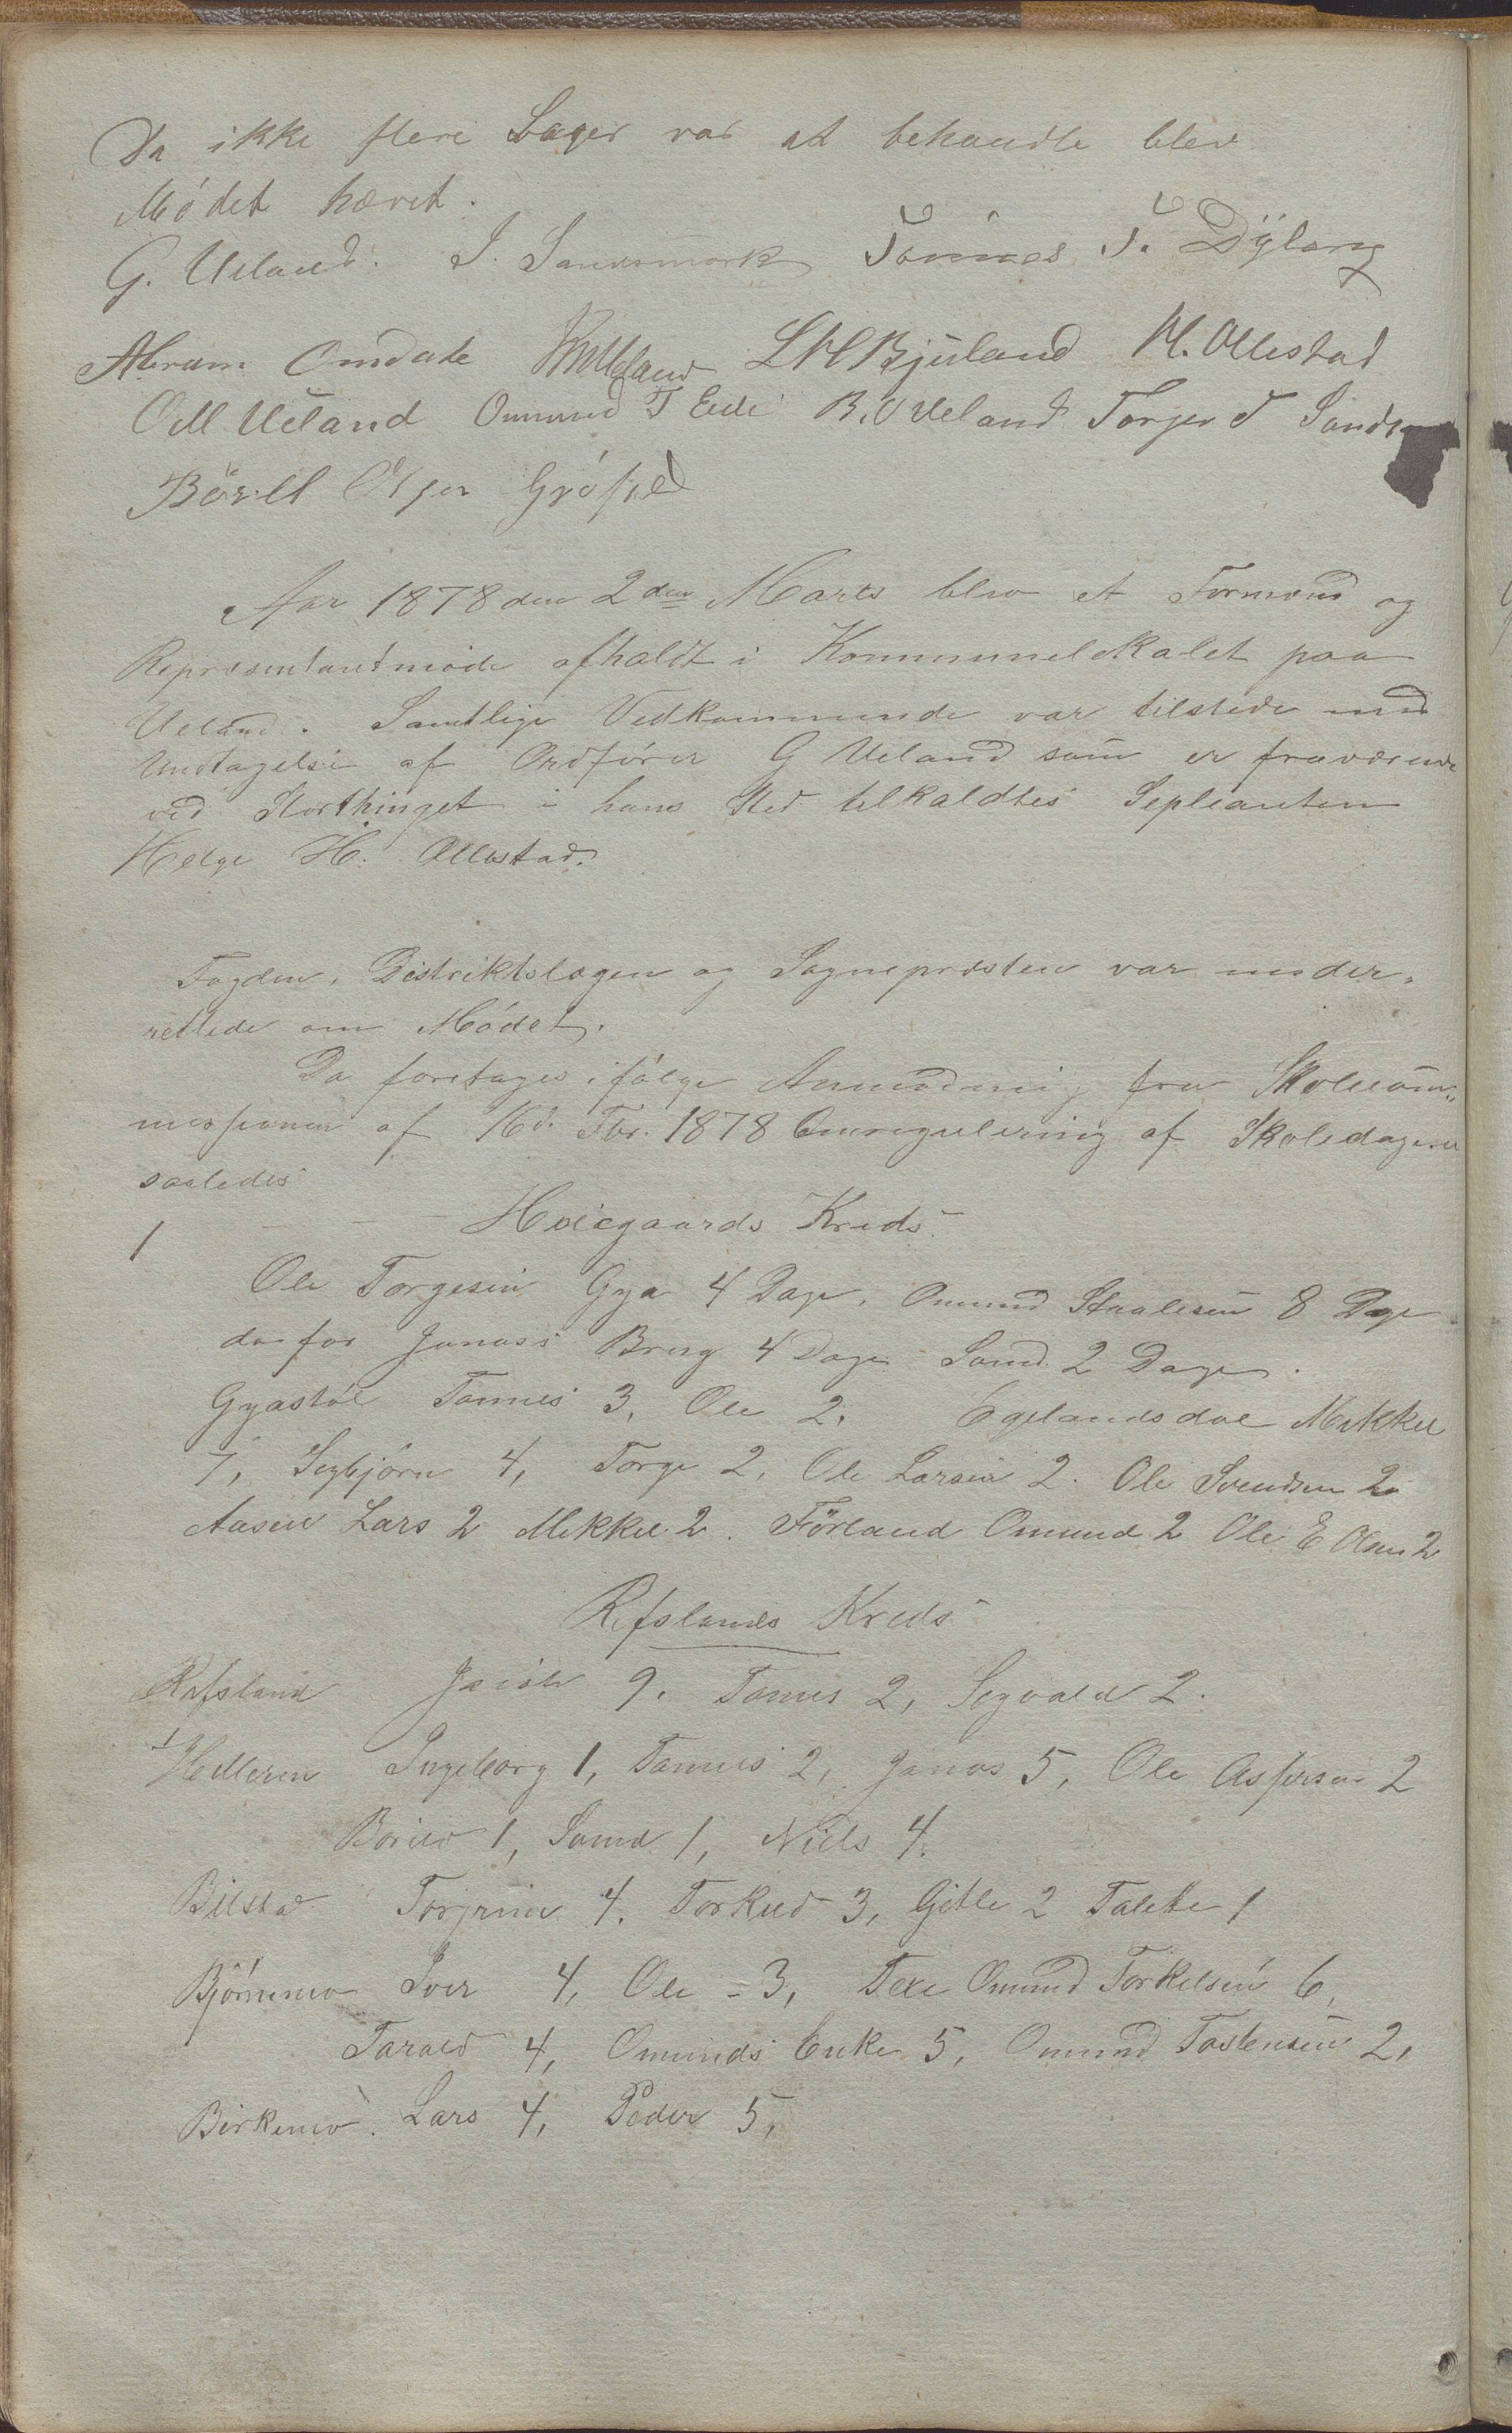 Da ikke flere Sager var at behandle blev
Mødet hævet.
G. Ueland. I. Sandsmark Tønnes T. Dÿbing
Abram Omdale LMBjuland H. Ollestad
O M Ueland Ommund T Eide B. O Ueland Torger T Sands
Børild
Aar 1878 den 2den Marts blev et Formand og
Repræsentantmøde afholdt i Kommunelokalet paa
Ueland. Samtlige Vedkommende var tilstede med
Undtagelse af Ordfører G Ueland som er fraværende
ved Storthinget i hans Sted tilkaldtes Sepleanten
Helge H. Ollestad.
Fogden, Distriktslægen og Sognepræsten var under-
rettede om Mødet.
Da foretages ifølge Anmodning fra Skolecom-
missionen af 16d. Fbr. 1878 Omregulering af Skoledagene
saaledes
1 - - - Hovegaards Kreds
Ole Torgesen Gya 4 Dage, Omund Staalesen 8 Dage
do for Jonass Brug 4 Dage Samd 2 Dage.
Gyastøl Tønnes 3, Ole 2, Egelandsdal Mikkel
7, Segbjørn 4, Torge 2, Ole Larsen 2. Ole Svendsen 2
Aasen Lars 2 Mikkel 2. Förland Omund 2 Ole E Olsen 2
Refslands Kreds
Refsland Jacob 9. Tønnes 2, Segvald 2.
Helleren Ingeborg 1, Tønnes 2, Jonas 5, Ole Aspersen 2
Børild 1, Samd 1, Niels 4.
Bilstad Torjrim 4. Torkild 3, Gitle 2 Talette 1
Bjørnemo Iver 4, Ole - 3, Omund Torkelsen 6,
Tarald 4, Omunds Enke 5, Omund Tostensen 2,
Birkemo. Lars 4, Peder 5,